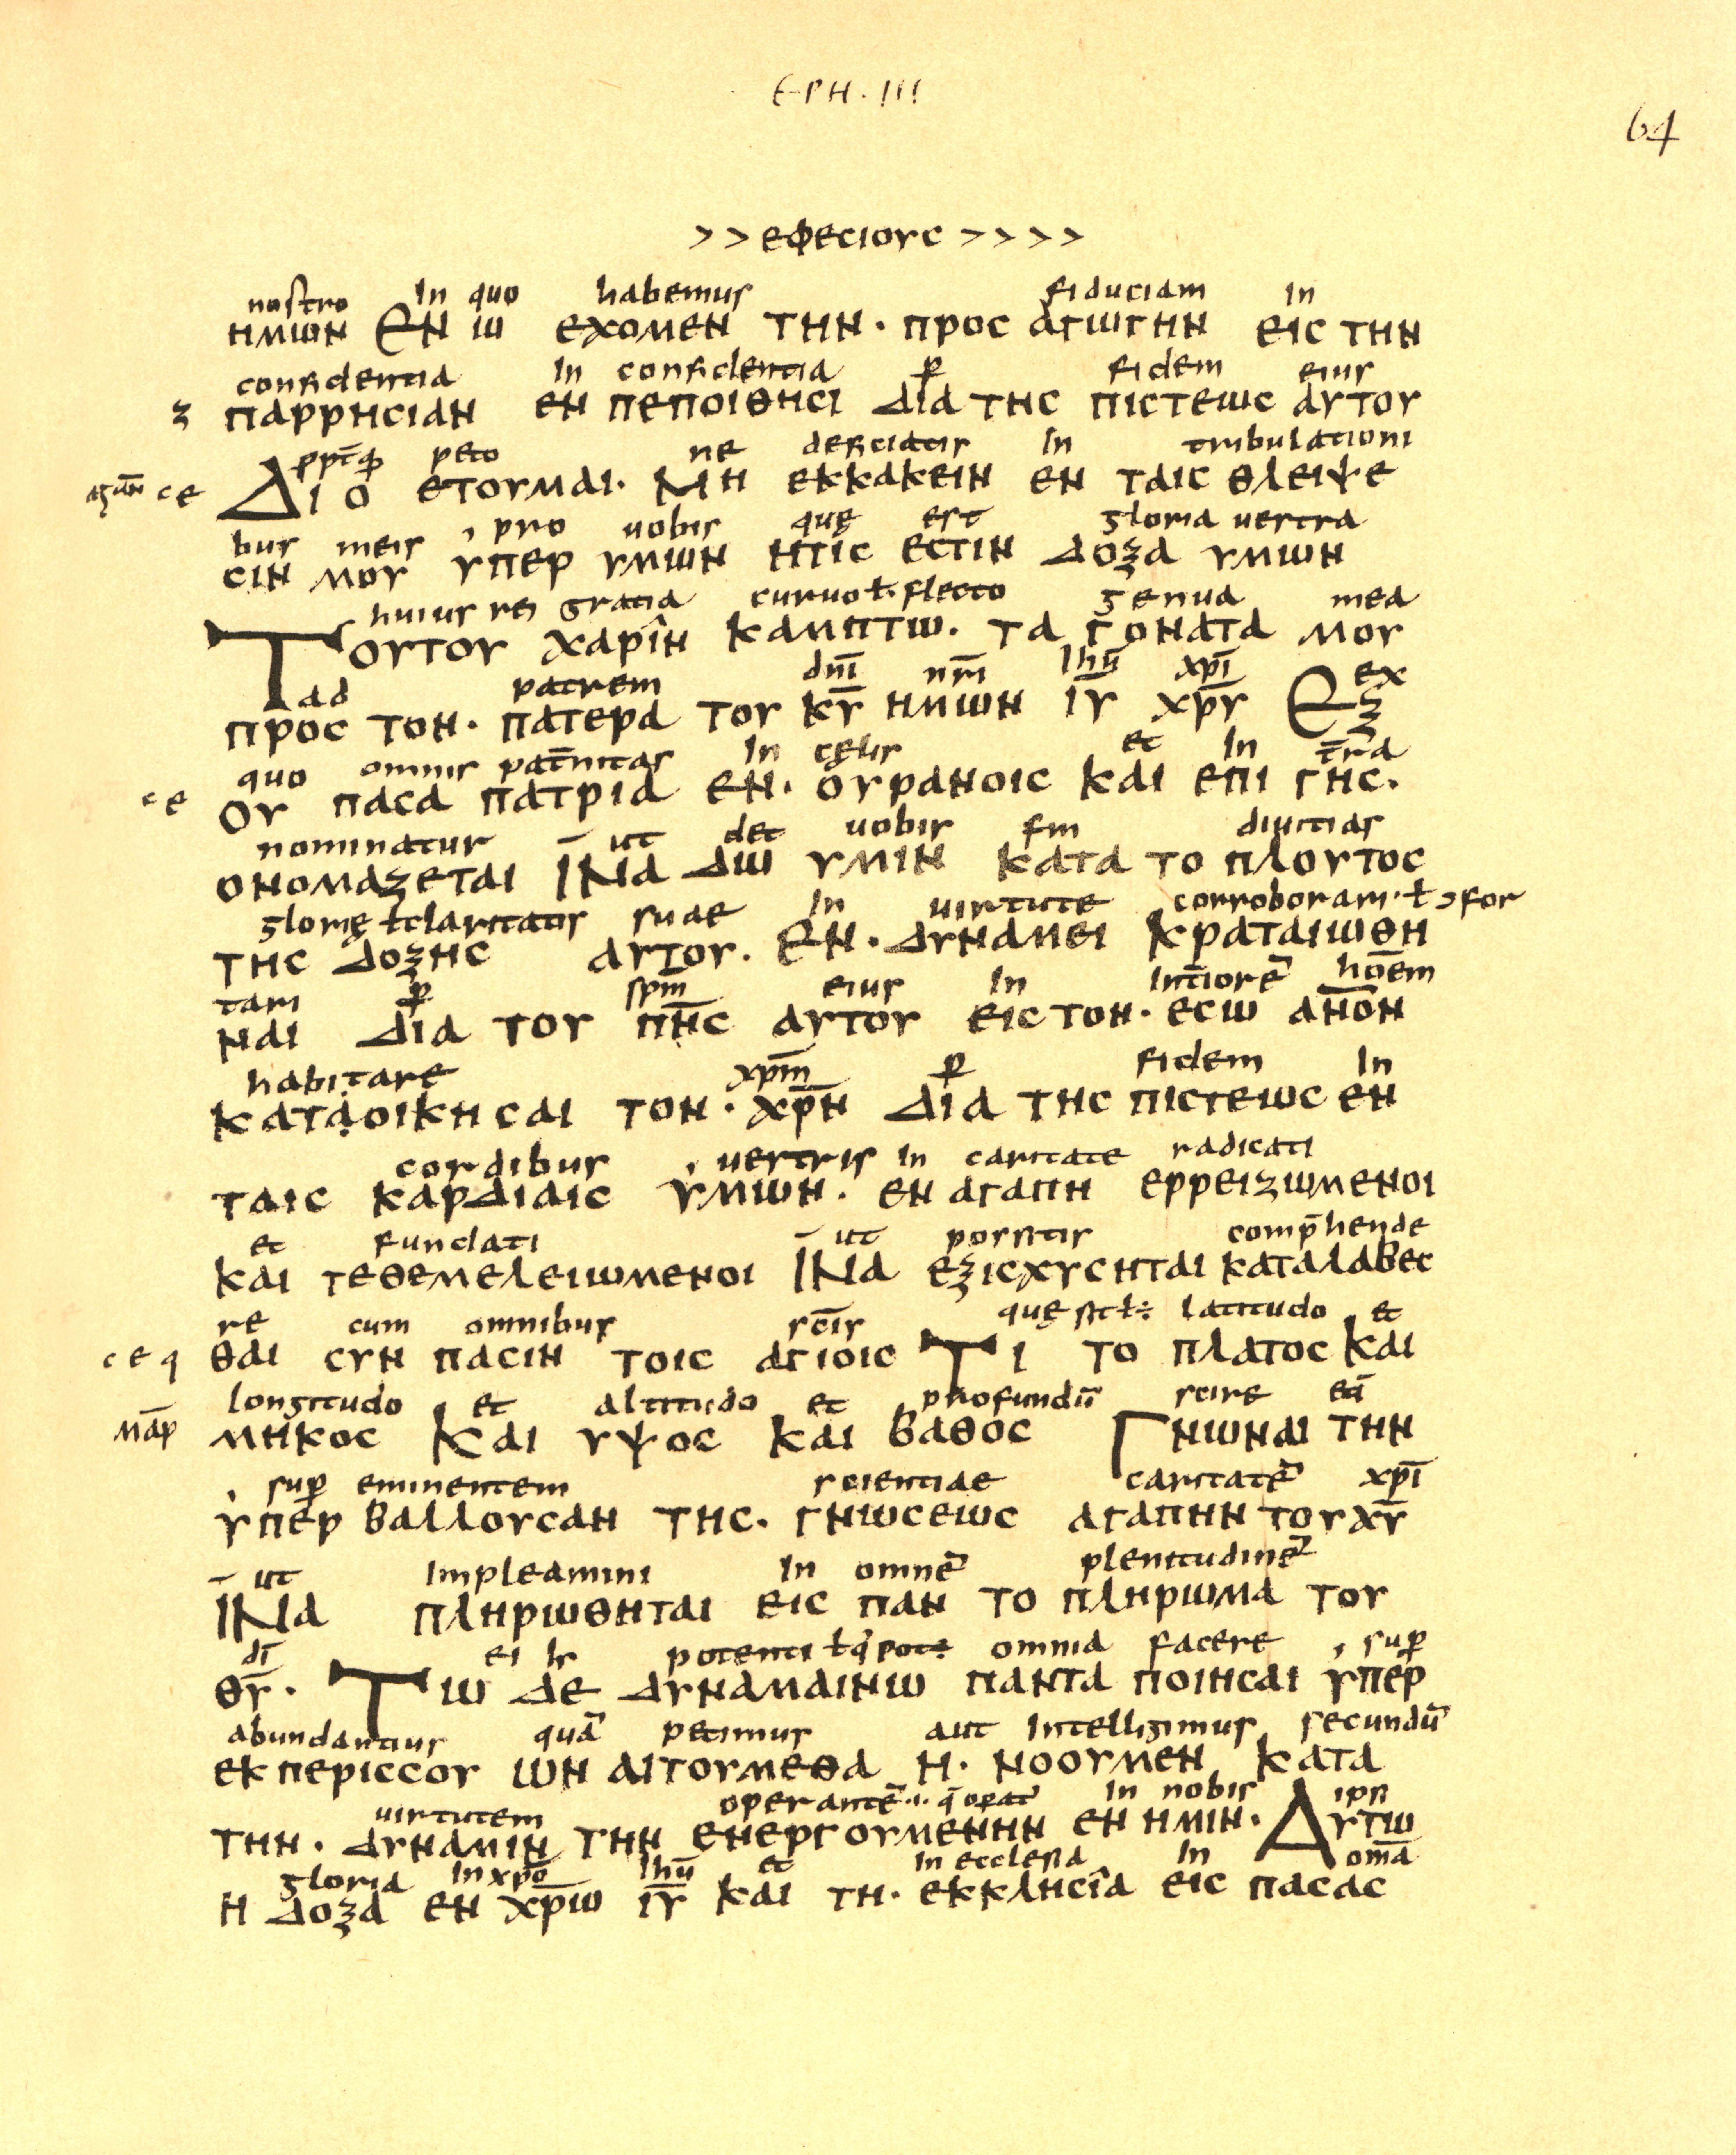 EPH. III
64
> > εφεcιουc > > > >
noſtro In quo habemus fiduciam in
ημων Εν ω εχομεν την· προc αγωγην ειc την
confidentia In confidentia p̱ fidem eius
ꝫ παρρηcιαν εν πεποιθηcι δια τηc πιcτεωc αυτου
pptq̄ peto ne deficiatis In tribulationi
ce Διο ετουμαι· Μη εκκακειν εν ταιc θλειψε
bus meis pro uobis quę est gloria uestra
cιν μου υπερ υμων ητιc εcτιν δοξα υμων
huius rei gratia curuo ł flecto genua mea
Τουτου χαριν καμπτω· τα γονατα μου
ad patrem dn̄i nr̄i ihū xp̄i ex
προc τον· πατερα του κ̄ῡ ημων ῑῡ χ̄ρ̄ῡ Εξ
quo omnis pat̄nitas In cęlis et In t̄ra
ce ου παcα πατρια εν· ουρανοιc και επι γηc·
nominatur ut det uobis fm diuitias
ονομαζεται Ινα δω υμιν κατα το πλουτοc
glorię ł claritatis suae In uirtute corroborari· ł ɔfor
τηc δοξηc αυτου· Εν· δυναμει κραταιωθη
tari p̱ sp̄m eius In Int̄iorē hōem
ναι δια του π̄ν̄c αυτου ειc τον· εcω αν̄ον
habitare xp̄m p̱ fidem In
καταοικηcαι τον· χ̄ρ̄ν δια τηc πιcτεωc εν
cordibus uestris In caritate radicati
ταιc καρδιαιc υμων· εν αγαπη ερρειζωμενοι
et fundati ut possitis comp̄hende
και τεθεμελειωμενοι Ινα εξιcχυcηται καταλαβεc
re cum omnibus sc̄is quę sit ł ÷ latitudo et
c e q θαι cυν παcιν τοιc αγιοιc Τι το πλατοc και
longitudo et altitudo et profundū scire eā
μηκοc Και υψοc και βαθοc Γνωναι την
sup̱ eminentem scientiae caritatē xp̄i
υπερ βαλλουcαν τηc· γνωcεωc αγαπην του χ̄ῡ
ut Impleamini In omnē plenitudinē
Ινα πληρωθηται ειc παν το πληρωμα του
dī ei potenti omnia facere sup̱
θ̄ῡ· Τω δε δυναμαινω παντα ποιηcαι υπερ
abundantius quā petimus aut Intelligimus secundū
εκπεριccου ων αιτουμεθα η· νοουμεν κατα
uirtutem operantē· q̄ operat̄ In nobis ipsi
την· δυναμιν την ενεργουμενην εν ημιν· Αυτω
gloria In xp̄o ihū et In ecclesia In om̄a
η δοξα εν χ̄ρ̄ω ῑῡ και τη· εκκληcια ειc παcαc